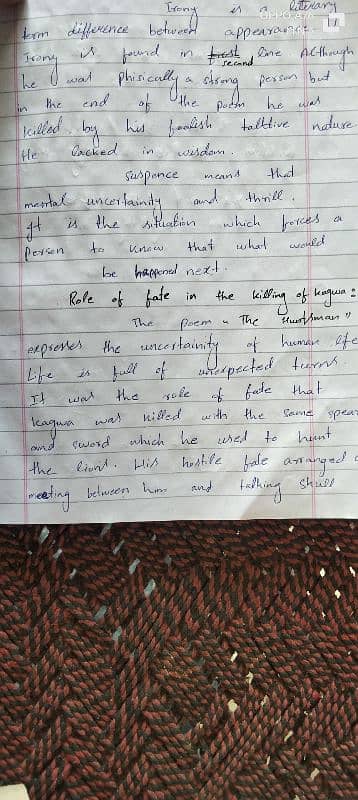 Irony is a literary
term difference between appearance.
Irony is found in first second line. Although
he was phisically a strong person but
in the end of the poem he was
killed by his foolish talktive nature
He lacked in wisdom.
Suspence means that
mental uncertainity and thrill.
It is the situation which forces a
person to know that what would
be happened next.
Role of fate in the killing of kagwa:
The poem "The Huntsman"
expresses the uncertainity of human life
Life is full of unexpected turns.
It was the role of fate that
kagwa was killed with the same spear
and sword which he used to hunt
the lions. His hostile fate arranged a
meeting between him and talking skull